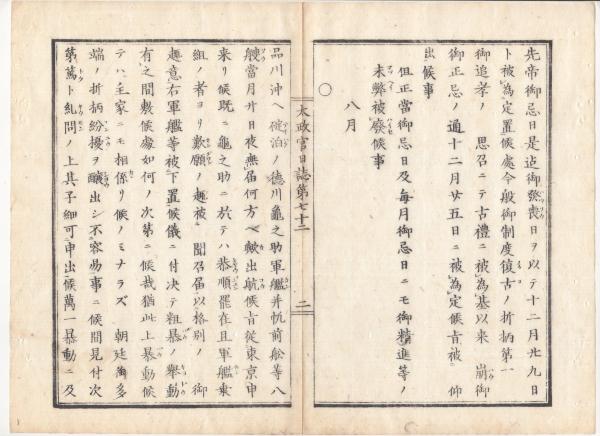 先帝御忌日是迄御發喪日ヲ以テ十二月廿九日
ト被為定置候處今般御制度復古ノ折柄第一
御追孝ノ　思召ニテ古禮ニ被為基以来　崩御
御正忌ノ通十二月廿五日ニ被為定候旨被　仰
出候事
但正當御忌日及毎月御忌日ニモ御精進等ノ
未弊被廢候事
八月
○
太政官日誌第七十二
二
品川沖ヘ碇泊ノ德川龜之助軍艦并帆前舩等八
艘當月廿日夜無届何方ヘ歟出航候旨從東京申
来リ候既ニ龜之助ニ於テハ恭順罷在且軍艦乗
組ノ者ヨリ歎願ノ趣被　聞召届以格別ノ　御
趣意右軍艦等被下置候儀ニ付决テ粗暴ノ擧動
有之間敷候處如何ノ次第ニ候哉猶此上暴動候
テハ主家ニモ相係リ候ノミナラズ　朝廷御多
端ノ折柄紛擾ヲ釀出シ不容易事ニ候間見付次
第篤ト糺問ノ上其子細可申出候萬一暴動ニ及